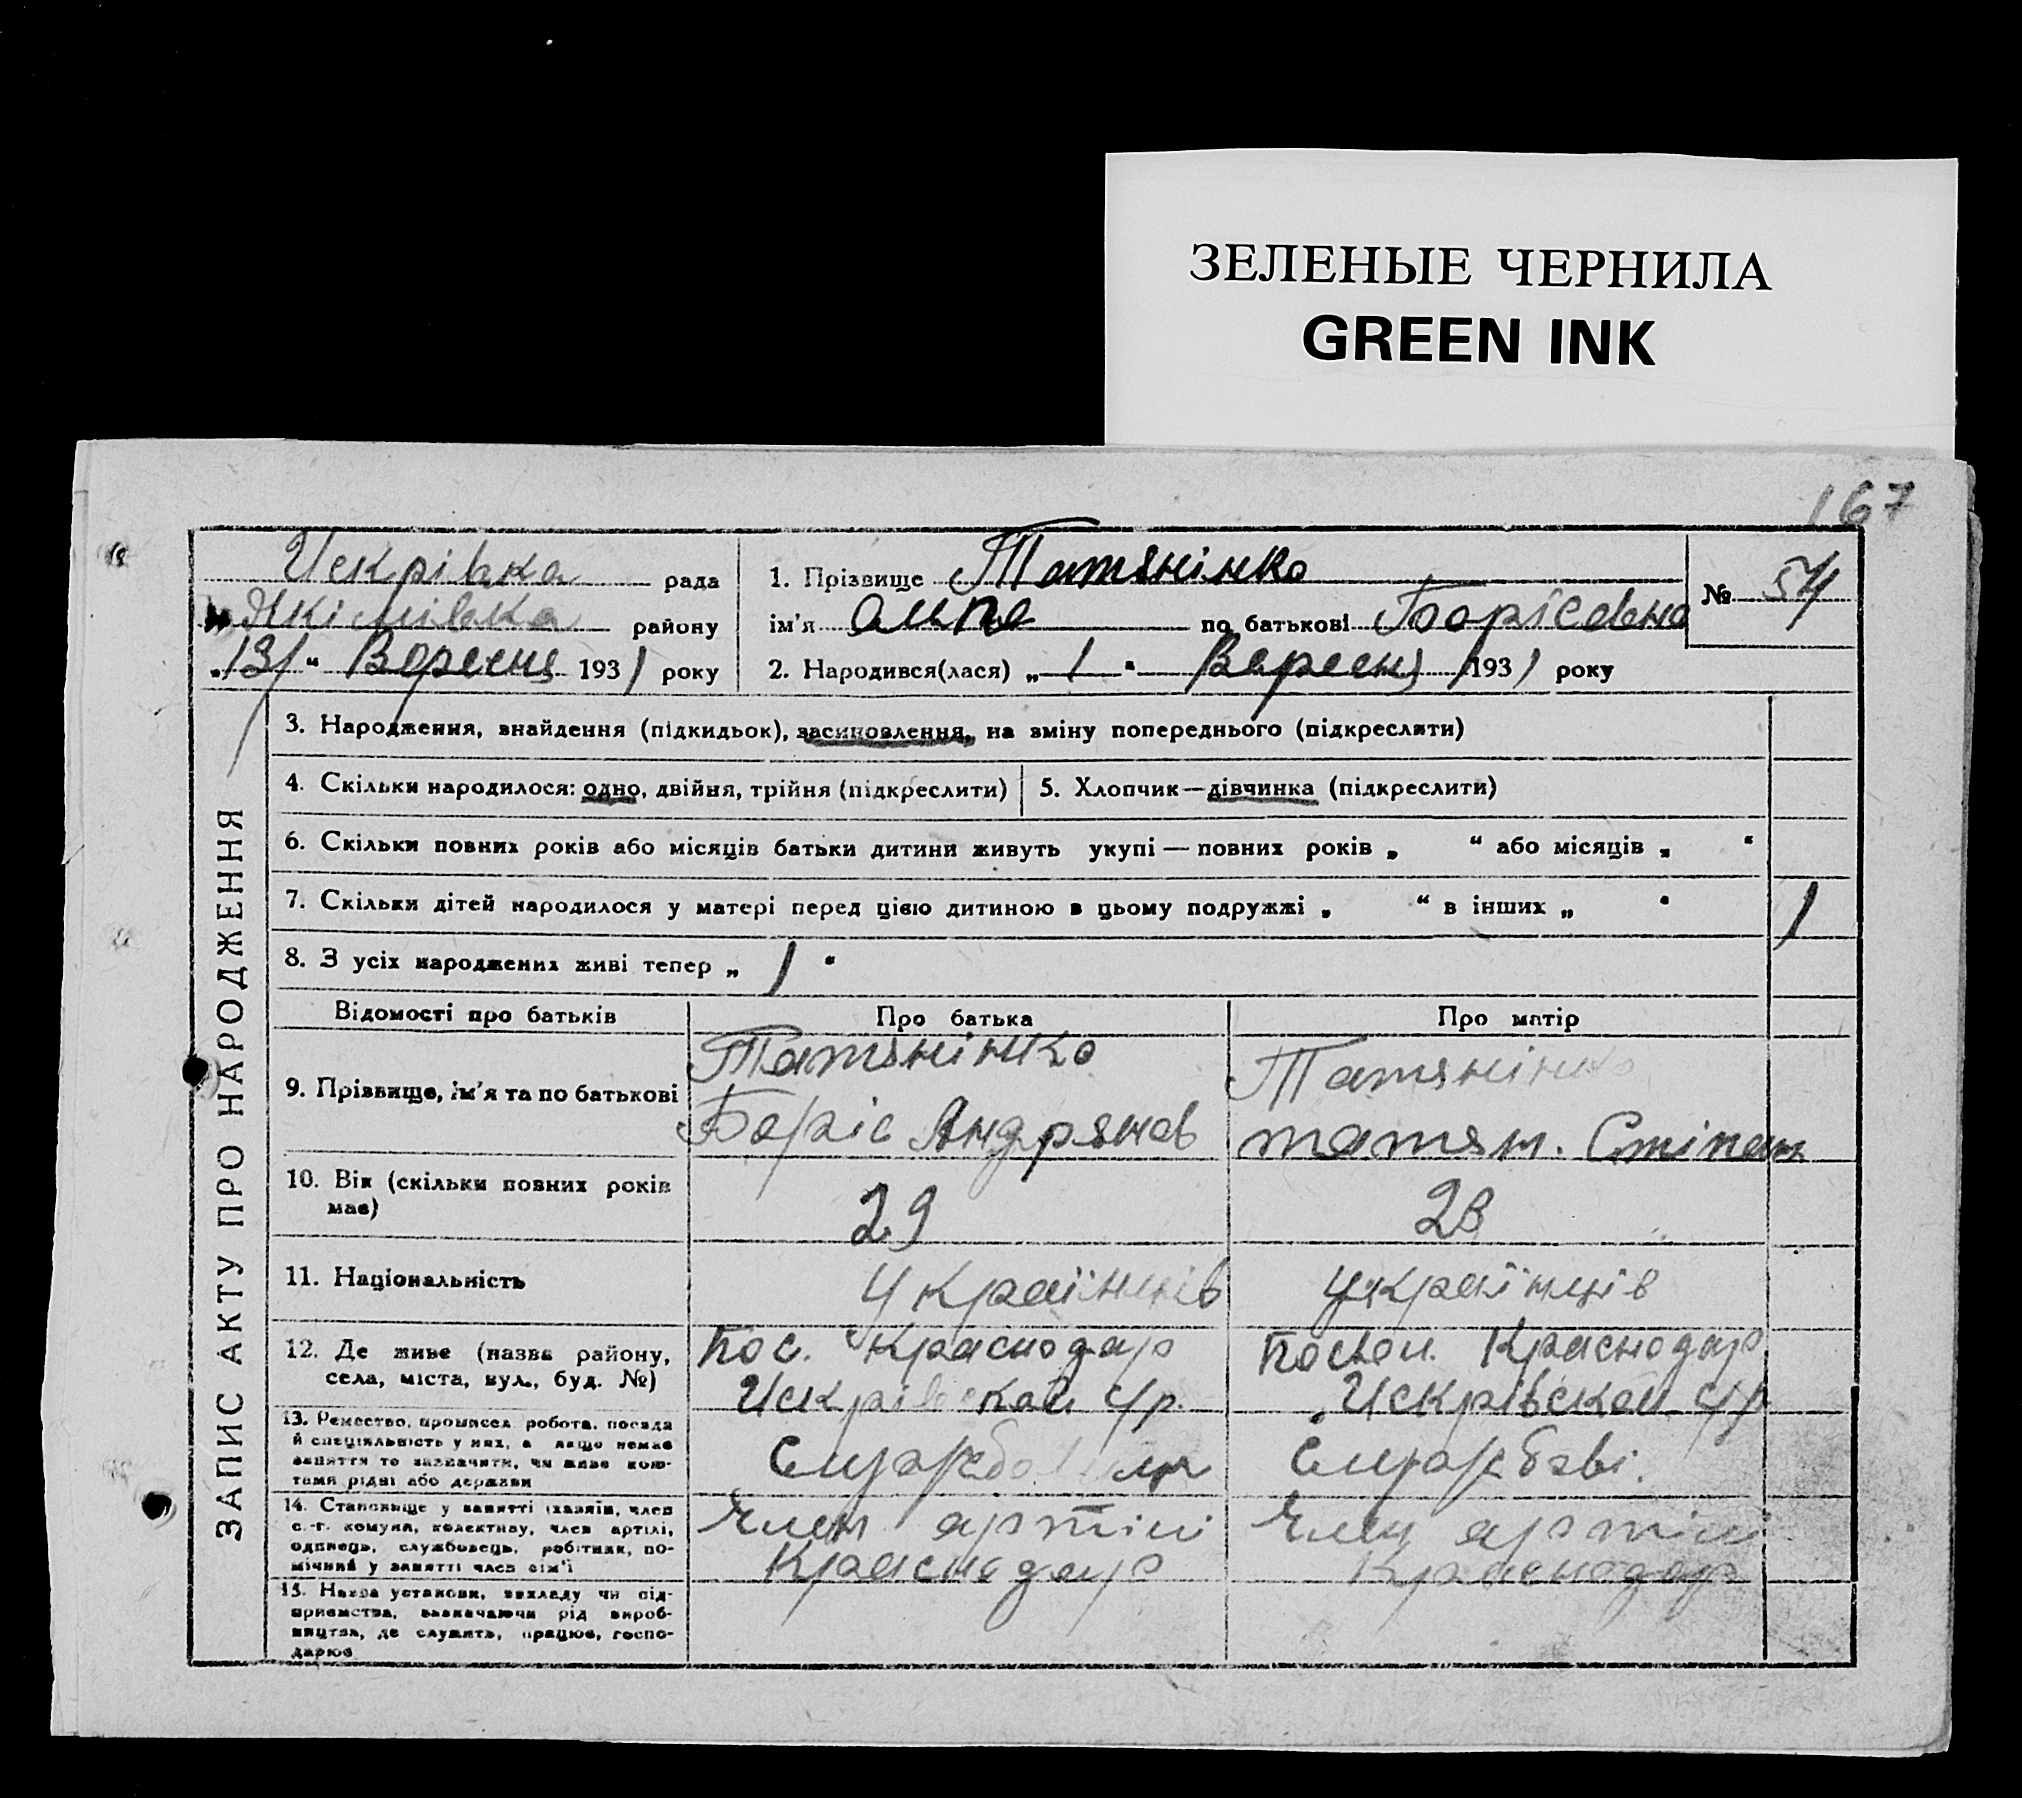 ЗЕЛЕНЫЕ ЧЕРНИЛА
GREEN INK
167
Искрівка рада
Якімівка району
„13“ Вересня 1931 року
1. Прізвище Татянінко
ім'я по батькові Борісовна
№ 54
2. Народився(лася) „1“ Вересня 1931 року
ЗАПИС АКТУ ПРО НАРОДЖЕННЯ
3. Народження, знайдення (підкидьок), засиновлення, на зміну попереднього (підкреслити)
4. Скільки народилося: одно, двійня, трійня (підкреслити)
5. Хлопчик—дівчинка (підкреслити)
6. Скільки повних років або місяців батьки дитини живуть укупі — повних років „ “ або місяців „ “
7. Скільки дітей народилося у матері перед цією дитиною в цьому подружжі „ “ в інших „ “
1
8. З усіх народжених живі тепер „1“
Відомості про батьків
Про батька
Про матір
9. Прізвище, ім'я та по батькові
Татянінко
Боріс Андрянов
Татянінко
татян. Стіпан
10. Вік (скільки повних років
має)
29
28
11. Національність
Українців
українців
12. Де живе (назва району,
села, міста, вул., буд. №)
Пос. Краснодар
Искрівской с/р.
Посьол. Краснодар
Искрівской с/р
13. Ремество, промисел, робота, посада
й спеціяльність у них, а якщо немає
заняття то зазначити, чи живе кош-
тами рідні або держави
14. Становище у занятті (хазяїн, член
с.-г. комуни, колективу, член артілі,
одинець, службовець, робітник, по-
мічний у занятті член сім'ї
Член артілі
Краснодар
Член артілі
Краснодар
15. Назва установи, закладу чи під-
приємства, зазначаючи рід вироб-
ництва, де служить, працює, госпо-
дарює